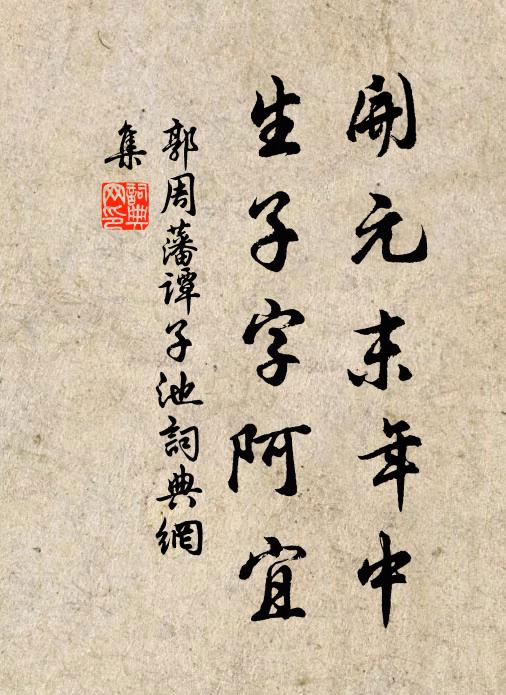 開元末年中
生子字阿宜
郭周藩譚子池詞典網
集
詞典
网印